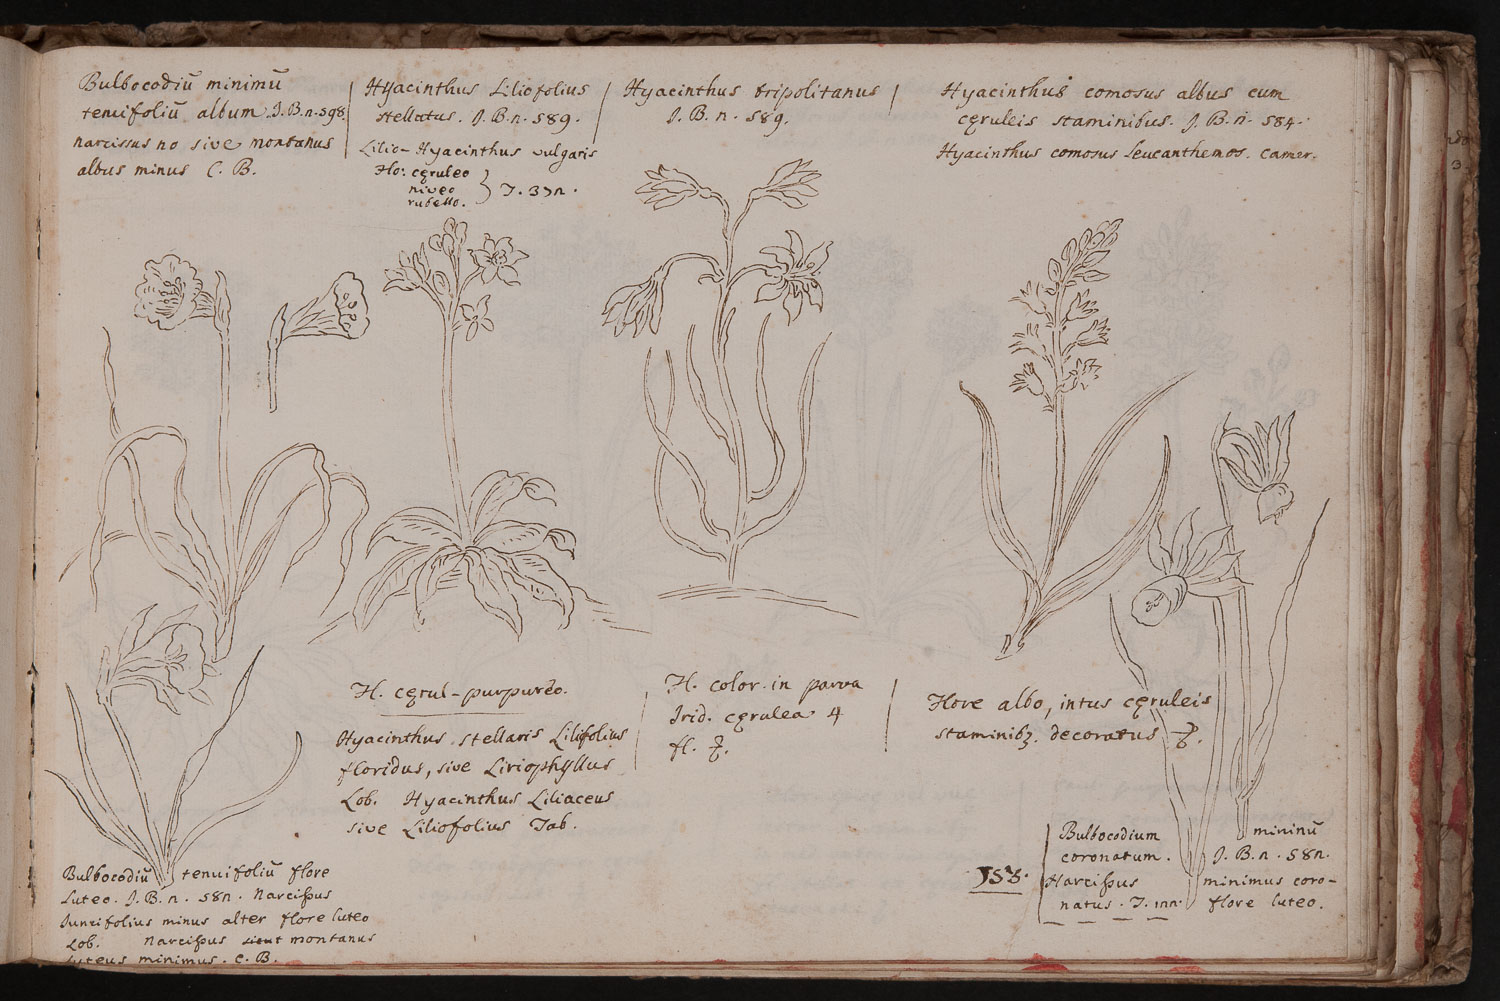 Bulbocodiū minimū
tenuifoliū album J.B.n.598
narcissus no sive montanus
albus minus C. B.
Hyacinthus Liliofolius
stellatus. J.B.n. 589.
Lilio-Hyacinthus vulgaris
flo: cęruleo
niveo
rubello.
} T. 37n.
Hyacinthus tripolitanus
J. B. n. 589.
Hyacinthus comosus albus cum
cęruleis staminibus. J. B. n. 584.
Hyacinthus comosus Leucanthemos. Camer.
H. cęrul-purpureo.
Hyacinthus stellaris Lilifolius
floridus, sive Liriophyllus
Lob. Hyacinthus Liliaceus
sive Liliofolius Tab.
H. color. in parva
Irid. cęrulea 4
fl.
Flore albo, intus cęruleis
staminibʒ. decoratus
Bulbocodiū tenuifoliū flore
Luteo. J. B. n. 58n. Narcissus
Juncifolius minus alter flore luteo
Lob. Narcissus montanus
Luteus minimus. C. B.
Bulbocodium minimū
coronatum. J. B. n. 58n.
Narcissus minimus coro-
natus. T. flore luteo.